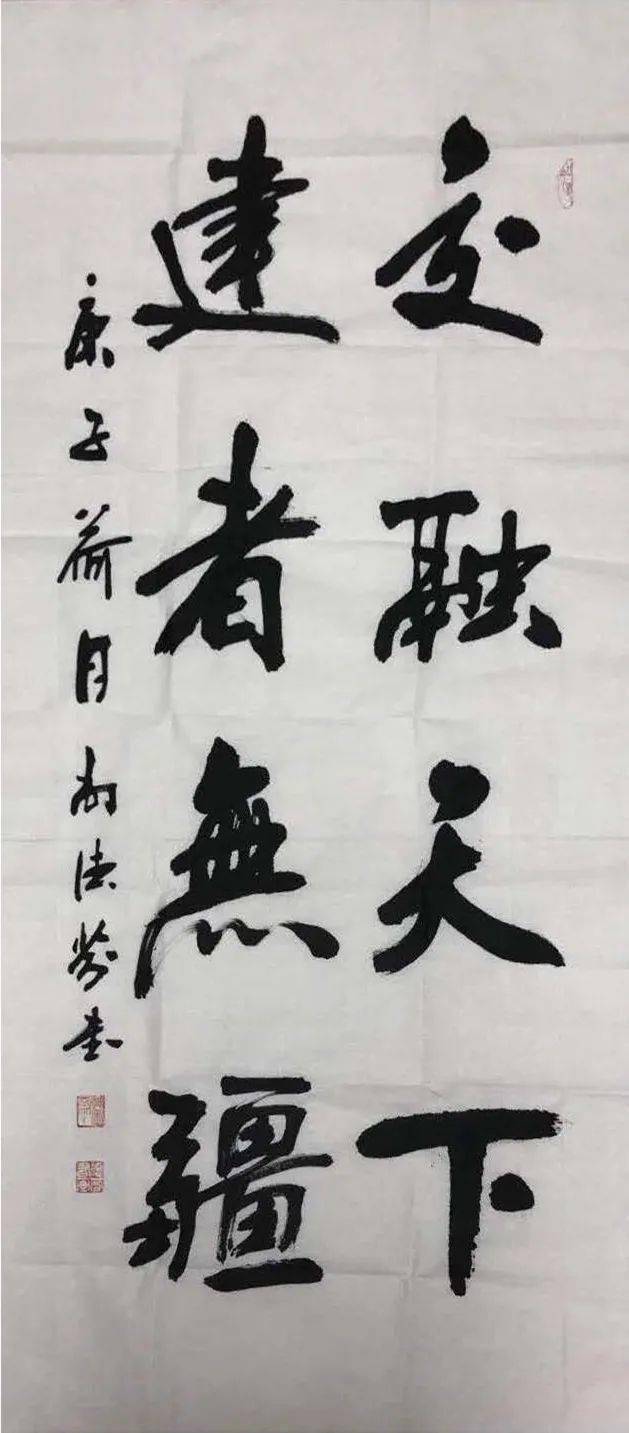 交融天下
建者無疆
庚子荷月尚德芳書